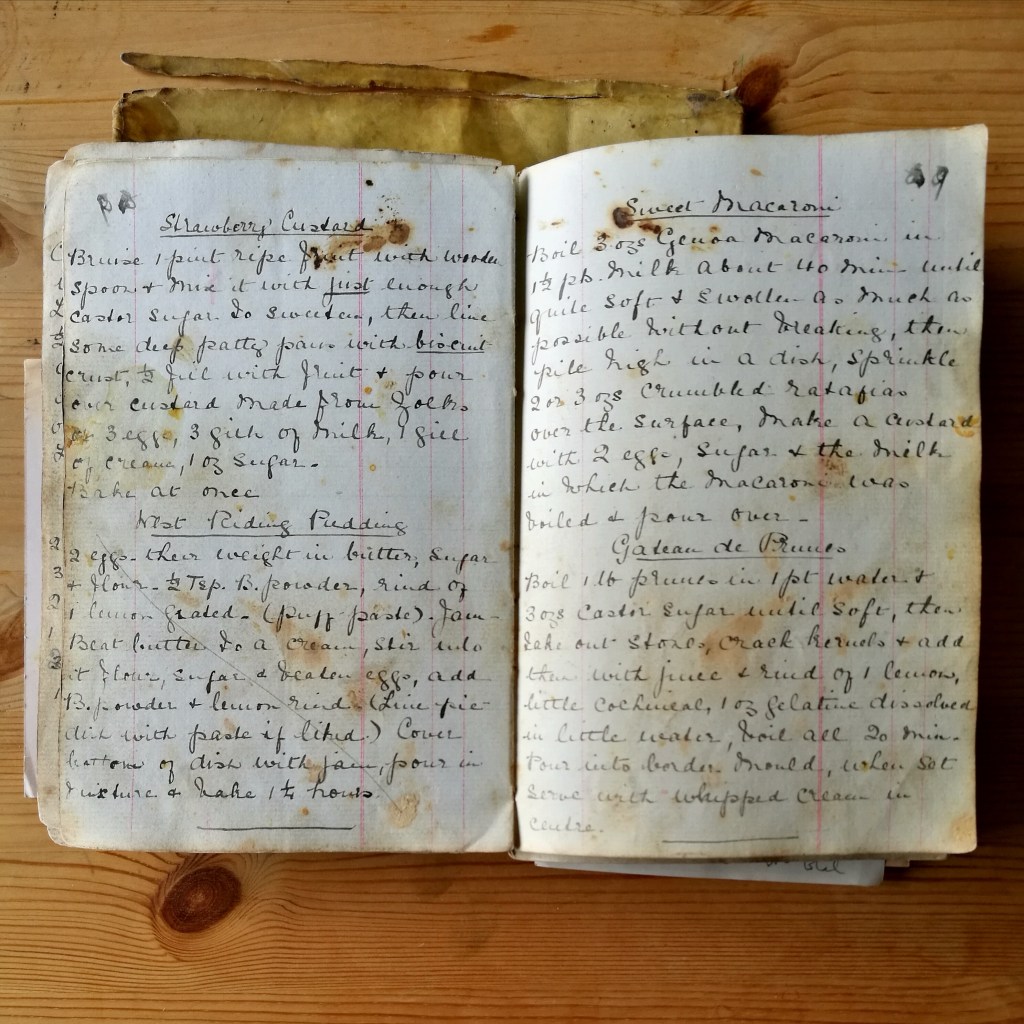 Strawberry Custard
Bruise 1 pint ripe fruit with wooden
spoon & mix it with just enough
castor sugar to sweeten, then line
some deep patty pans with biscuit
crust, ½ fill with fruit & pour
our custard made from yolks
of 3 eggs, 3 gills of milk, 1 gill
of cream, 1 oz sugar.
Bake at once
West Riding Pudding
2 eggs - their weight in butter, sugar
& flour - ½ Tsp. B. powder, rind of
1 lemon grated. (puff paste). Jam -
Beat butter to a cream, stir into
it flour, sugar & beaten eggs, add
B. powder & lemon rind. (Line pie
dish with paste if liked.) Cover
bottom of dish with jam, pour in
mixture & bake 1¼ hours
89
Sweet Macaroni
Boil 3 ozs Genoa Macaroni in
1½ pts. Milk about 40 min - until
quite soft & swollen as much as
possible without breaking, then
pile high in a dish, sprinkle
2 or 3 ozs crumbled ratafias
over the surface, make a custard
with 2 eggs, sugar & the milk
in which the macaroni was
boiled & pour over -
Gateau de Prunes
Boil 1 lb prunes in 1 pt water &
3 ozs castor sugar until soft, then
take out stones, crack kernels & add
then with juice & rind of 1 lemon,
little cochineal, 1 oz gelatine dissolved
in little water, boil all 20 min -
Pour into border mould, when set
serve with whipped cream in
centre.